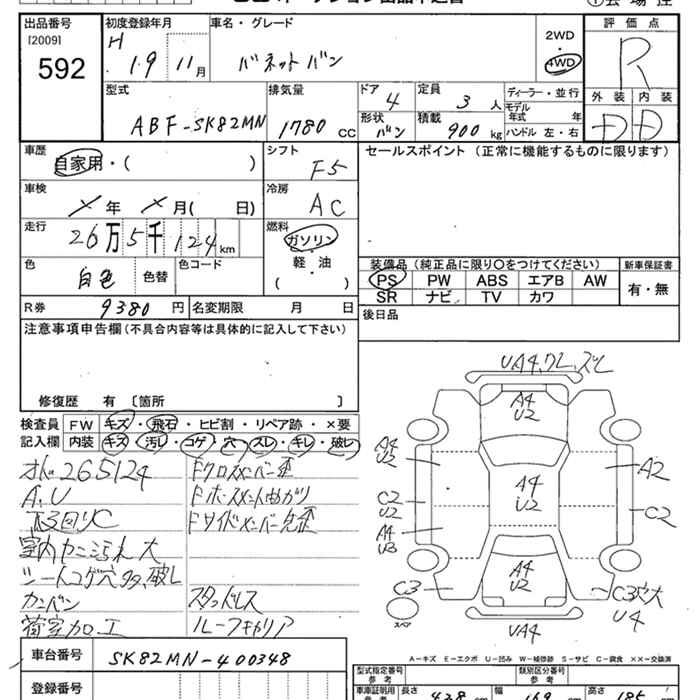 出品番号 初度登録年月 車名・グレード 2WD 評価点
[2009] H 19 11月 バネットバン ・ R
592 4WD
型式 排気量 ドア 定員 ディーラー・並行 外装 内装
ABF-SK82MN 1780 CC 4 3人 モデル年式 年 D D
形状 バン 積載 900 kg ハンドル 左・右
車歴 シフト セールスポイント (正常に機能するものに限ります)
自家用・( ) F5
車検 冷房
メ年 メ月( 日) AC
走行 燃料
26万5千124 km ガソリン
色 色替 色コード 軽・油 装備品 (純正品に限り○をつけてください) 新車保証書
白色 ( ・ ) PS PW ABS エアB AW 有・無
SR ナビ TV カワ
R券 9380円 名変期限 月 日 後日品
注意事項申告欄(不具合内容等は具体的に記入して下さい)
修復歴 有 〔箇所 〕
検査員 FW キズ・飛石・ヒビ割・リペア跡・×要
記入欄 内装 キズ・汚レ・コゲ・穴・スレ・キレ・破レ
265124 Fクロスメンバー歪
A.U
下回りC Fサイドメンバー先歪
室内カニ汚れ大
シートコゲ穴多,破レ
カンバン スタッドレス
荷室加工 ルーフキャリア
UA4,ワレ,ズレ
A4
U2
A4
U2
A2
A4
U2
C2
U2
C2
A4
U3
A4
U2
C3
C3穴大
U4
スペア
UA4
A-キズ E-エクボ U-凹み W-補修跡 S-サビ C-腐食 ××-交換済
車台番号 SK82MN-400348
登録番号
型式指定番号 参考 類別区分番号 参考
車庫証明用 参考 長さ 428 cm 幅 169 cm 高さ 185 cm